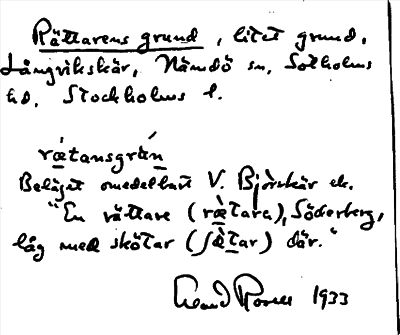 Rättarens grund, litet grund,
Långvikskär, Nämdö sn, Sotholms
hd, Stockholms l.
rǽtansgrǜn
Beläget omedelbart V. Björkskär ek.
"En rättare (rætara), Söderberg,
låg med skötar (ʃœ̀tar) där."
1933